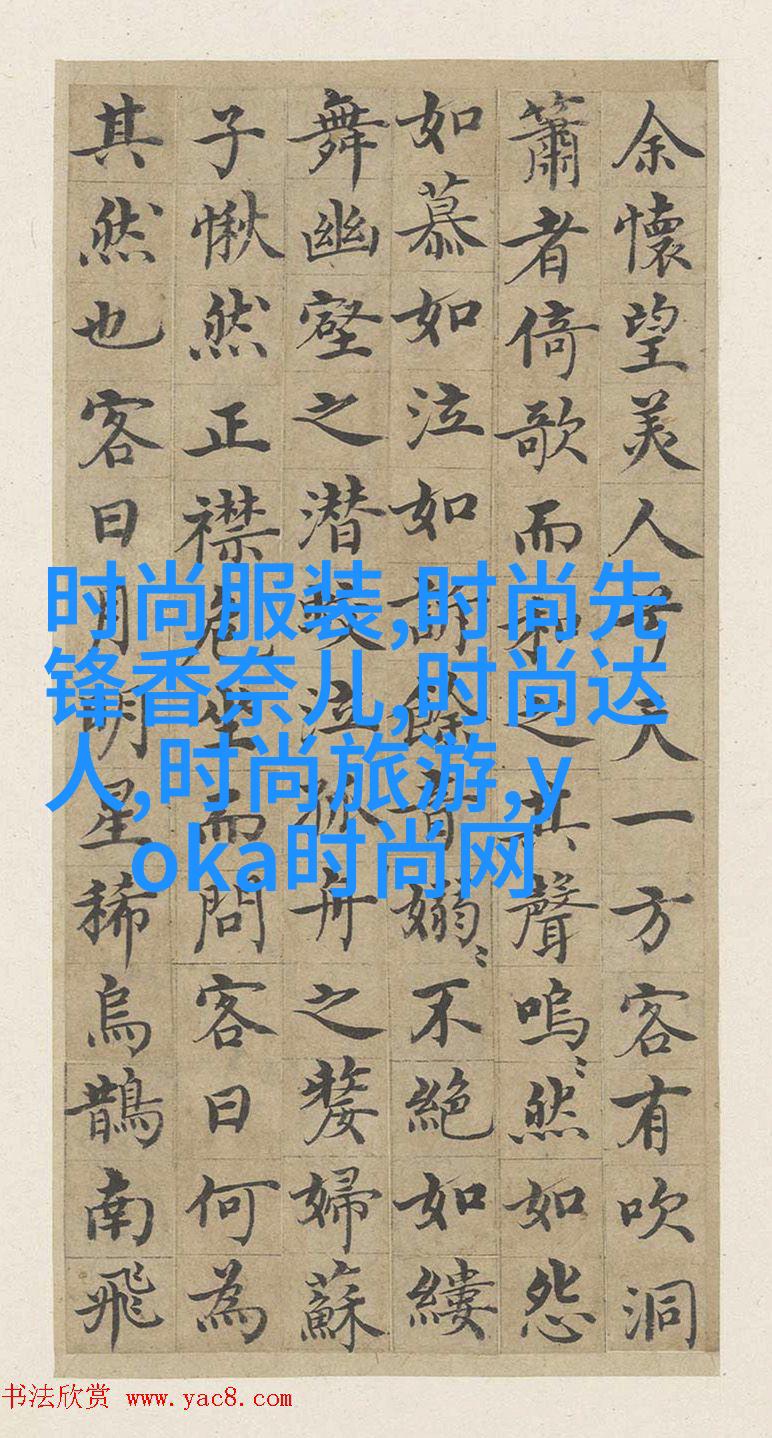 余懷望美人兮天一方客有吹洞
簫者倚歌而和之其聲嗚〻然如怨
如慕如泣如訴餘音嫋〻不絕如縷
舞幽壑之潜蛟泣孤舟之嫠婦蘇
子愀然正襟危坐而問客曰何為
其然也客曰月明星稀烏鵲南飛
时尚服装,时尚先
锋香奈儿,时尚达
人,时尚旅游,y
oka时尚网
书法欣赏 www.yac8.com